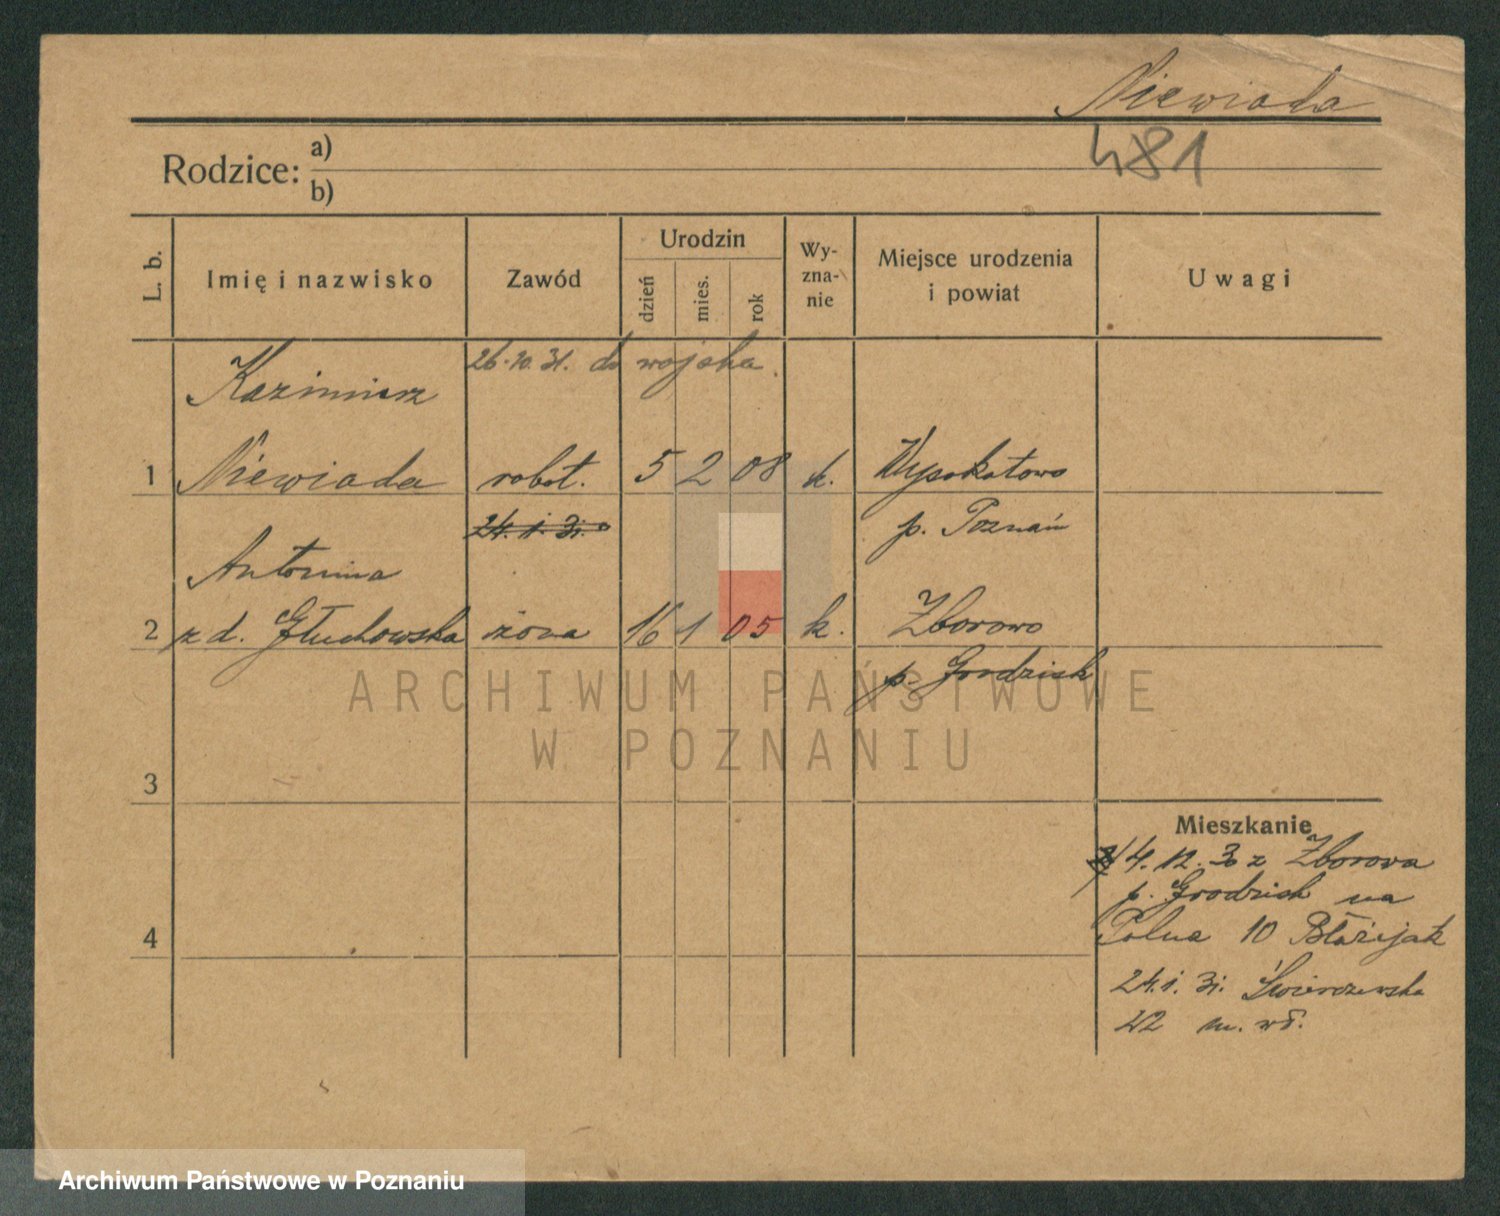 Niewiada
481
Rodzice: a)
b)
L. b.
Imię i nazwisko
Zawód
Urodzin
dzień
mies.
rok
Wy-
zna-
nie
Miejsce urodzenia
i powiat
Uwagi
26.10.31. do wojska.
Kazimierz
1 Niewiada robot. 5 2 08 k. Wysokotowo
24.1.31. p. Poznań
Antonina
2 z d. Głuchowska żona 16 1 05 k. Zborowo
p. Grodzisk
ARCHIWUM PAŃSTWOWE
W POZNANIU
3
Mieszkanie
4.12.30 z Zborowa
p. Grodzisk na
4
Polna 10 Błażejak
24.1.31. Świerczewska
42 m. wł.
Archiwum Państwowe w Poznaniu